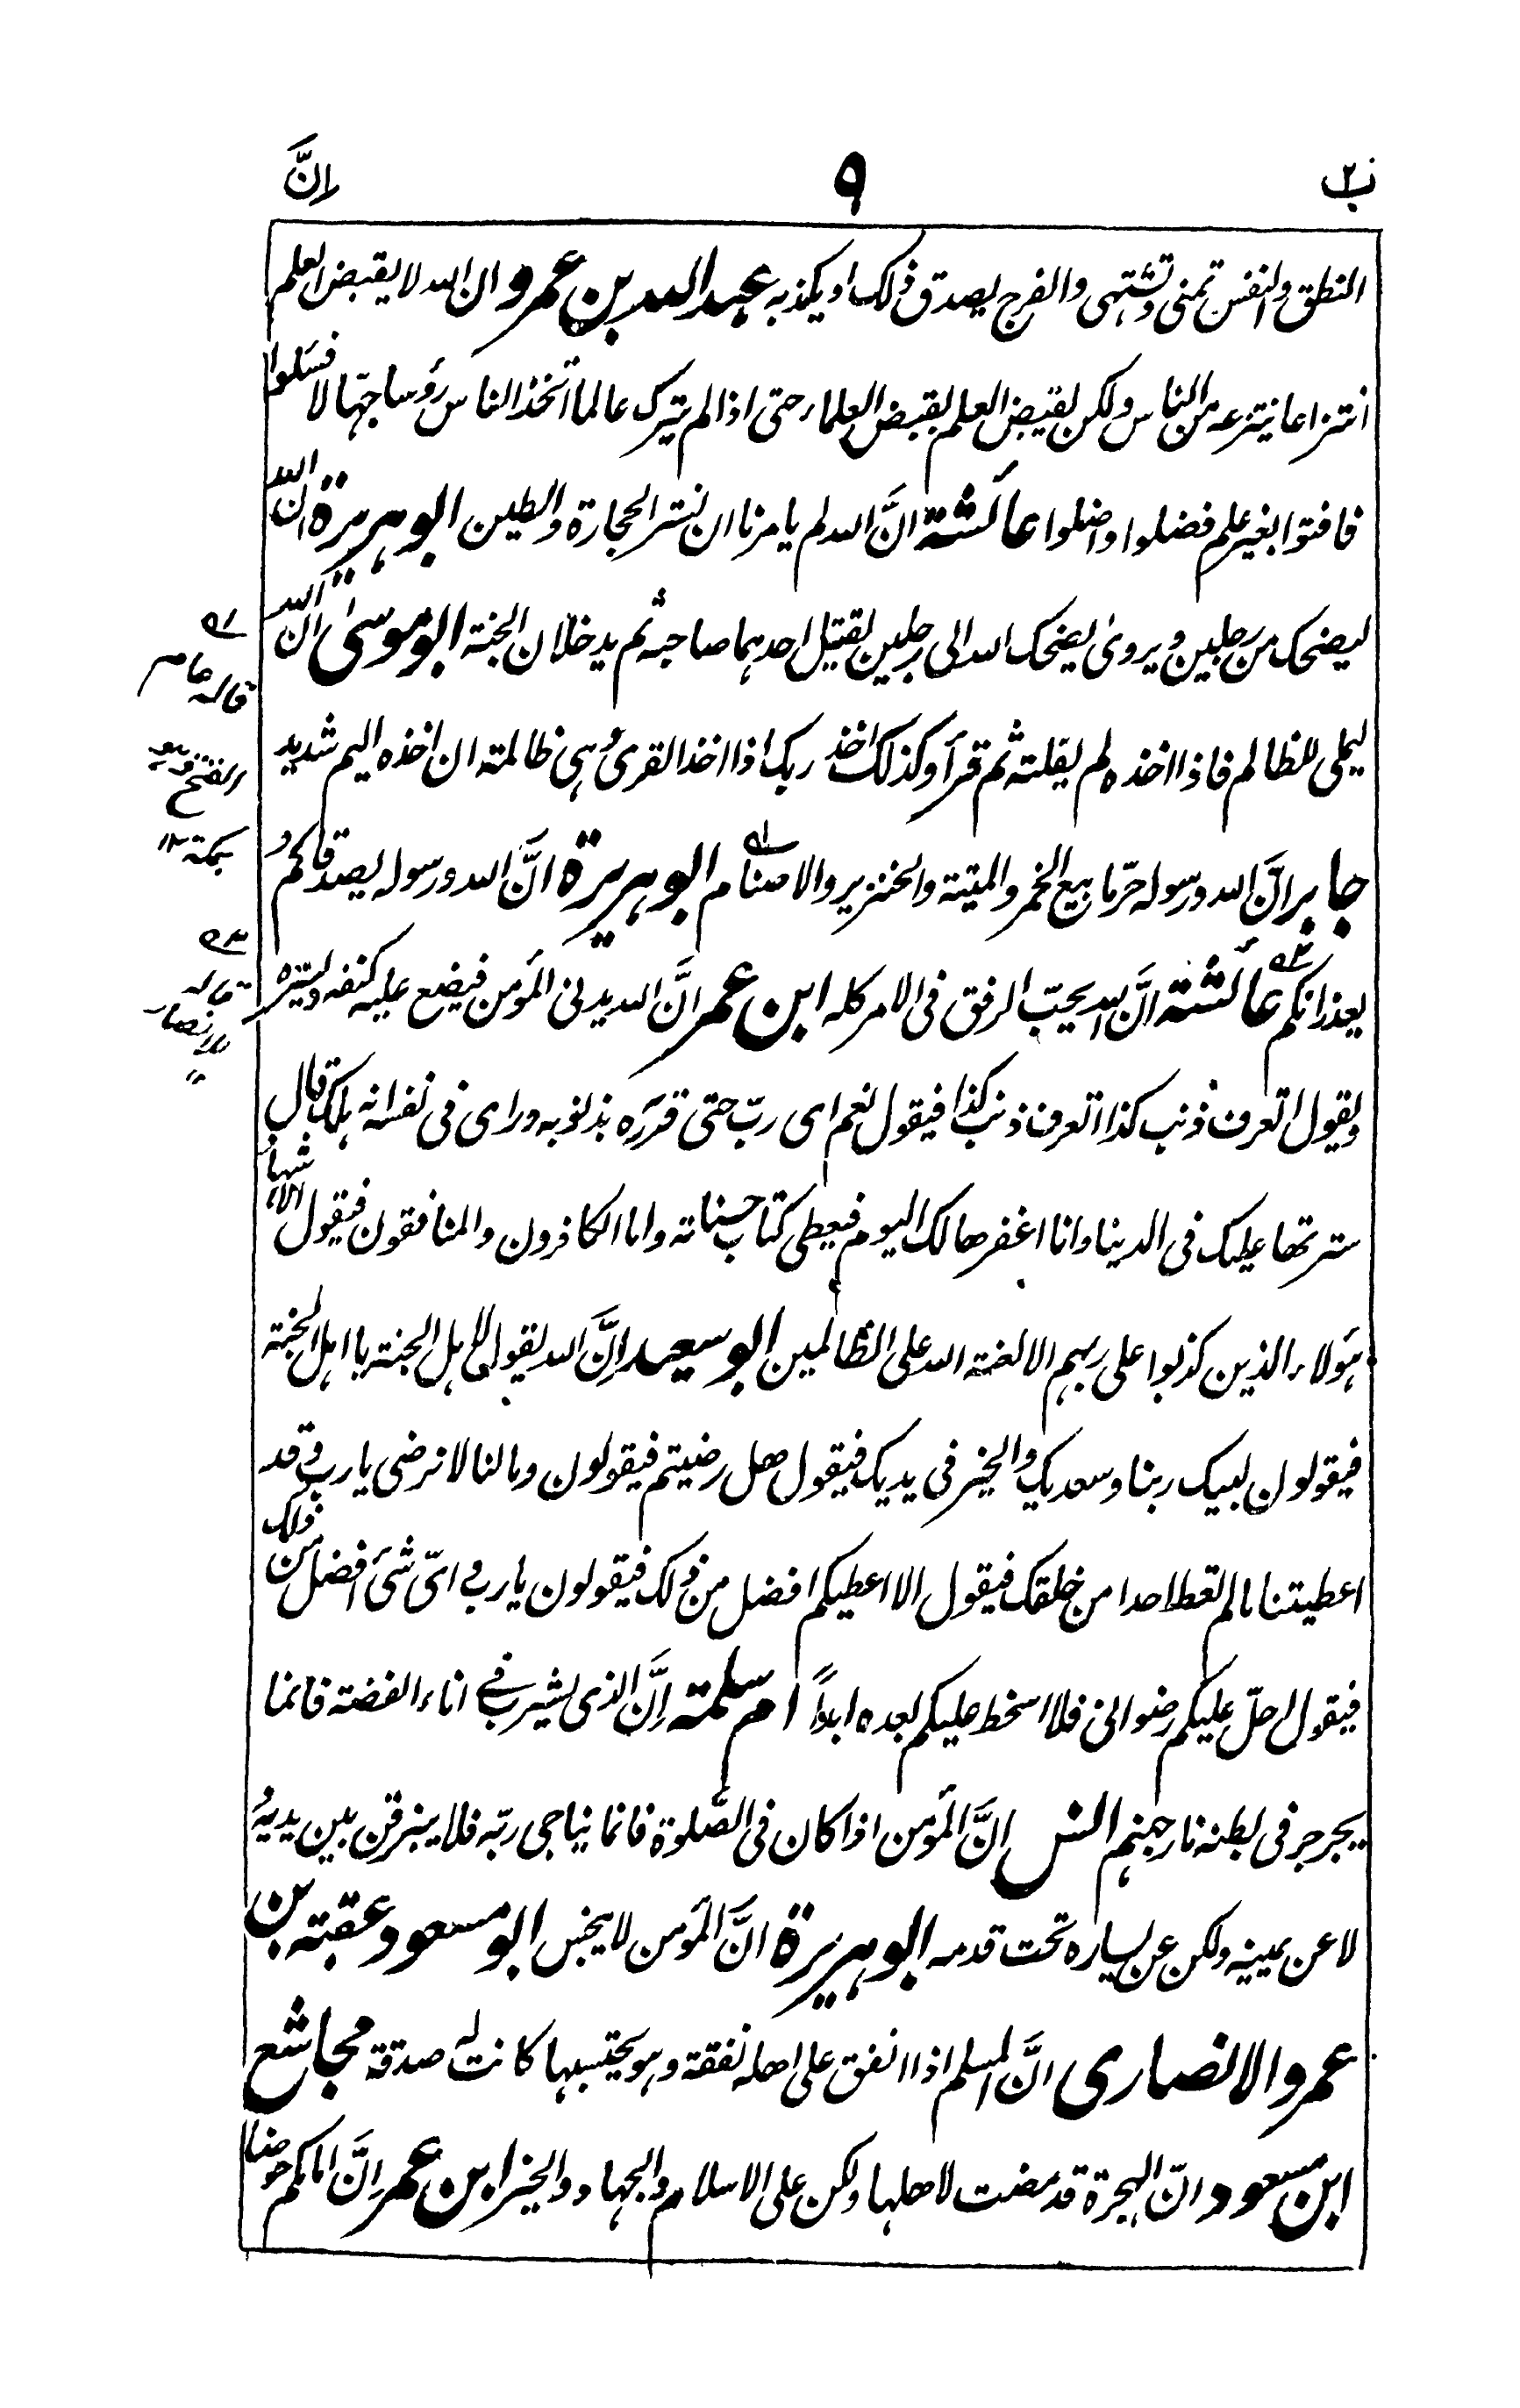 ب ٢ ٩ اِنَّ
النطق والنفس تمنى وتشتهى والفرج يصدق ذلك او يكذبه عبد الله بن عمرو ان الله لا يقبض العلم
انتزاعا ينتزعه من الناس ولكن يقبض العلم بقبض العلماء حتى اذا لم يترك عالما اتخذ الناس رؤسا جهّالا فسئلوا
فافتوا بغير علم فضلوا واضلوا عائشة انَّ الله لم يامرنا ان نستر الحجارة والطين ابو هريرة ان الله
ليضحك من رجلين ويروى يضحك الله الى رجلين يقتل احدهما صاحبه ثم يدخلان الجنة ابو موسىٰ ان الله
ليملى للظالم فاذا اخذه لم يفلته ثم قرأ وكذلك اخذ ربك اذا اخذ القرى وهى ظالمة ان اخذه اليم شديد
جابر انَّ الله ورسوله حرّما بيع الخمر والميتة والخنزير والاصنام ابو هريرة انَّ الله ورسوله يصدقانكم و
يعذرانكم عائشة انَّ الله يحبّ الرفق فى الامر كله ابن عمر انَّ الله يدنى المؤمن فيضع عليه كنفه ويستره
ويقول اتعرف ذنب كذا اتعرف ذنب كذا فيقول نعم اى ربّ حتى قرّره بذنوبه وراى فى نفسه انه هلك قال
سترتها عليك فى الدنيا وانا اغفرها لك اليوم فيعطى كتاب حسناته واما الكافرون والمنافقون فيقول الاشهاد
هؤلاء الذين كذبوا على ربهم الا لعنة الله على الظالمين ابو سعيد اِنَّ الله يقول لاهل الجنة يا اهل الجنة
فيقولون لبيك ربنا وسعديك والخير فى يديك فيقول هل رضيتم فيقولون وما لنا لا نرضى يا رب وقد
اعطيتنا ما لم تعط احدا من خلقك فيقول الا اعطيكم افضل من ذلك فيقولون يا رب واىّ شئ افضل من ذلك
فيقول احلّ عليكم رضوانى فلا اسخط عليكم بعده ابداً ام سلمة اِنَّ الذى يشرب فى اناء الفضة فانما
يجرجر فى بطنه نار جهنم انس انَّ المؤمن اذا كان فى الصّلوة فانما يناجى ربّه فلا يبزقن بين يديه و
لا عن يمينه ولكن عن يساره تحت قدمه ابو هريرة انَّ المؤمن لا ينجس ابو مسعود عقبة بن
عمرو الانصارى انَّ المسلم اذا انفق على اهله نفقة وهو يحتسبها كانت له صدقة مجاشع
ابن مسعود انّ الهجرة قد مضت لاهلها ولكن على الاسلام والجهاد والخير ابن عمر اِنَّ امامكم حوضا
ا٥
قاله عام
الفتح وهو
بمكة ١٢
٢٥
قاله
للانصار